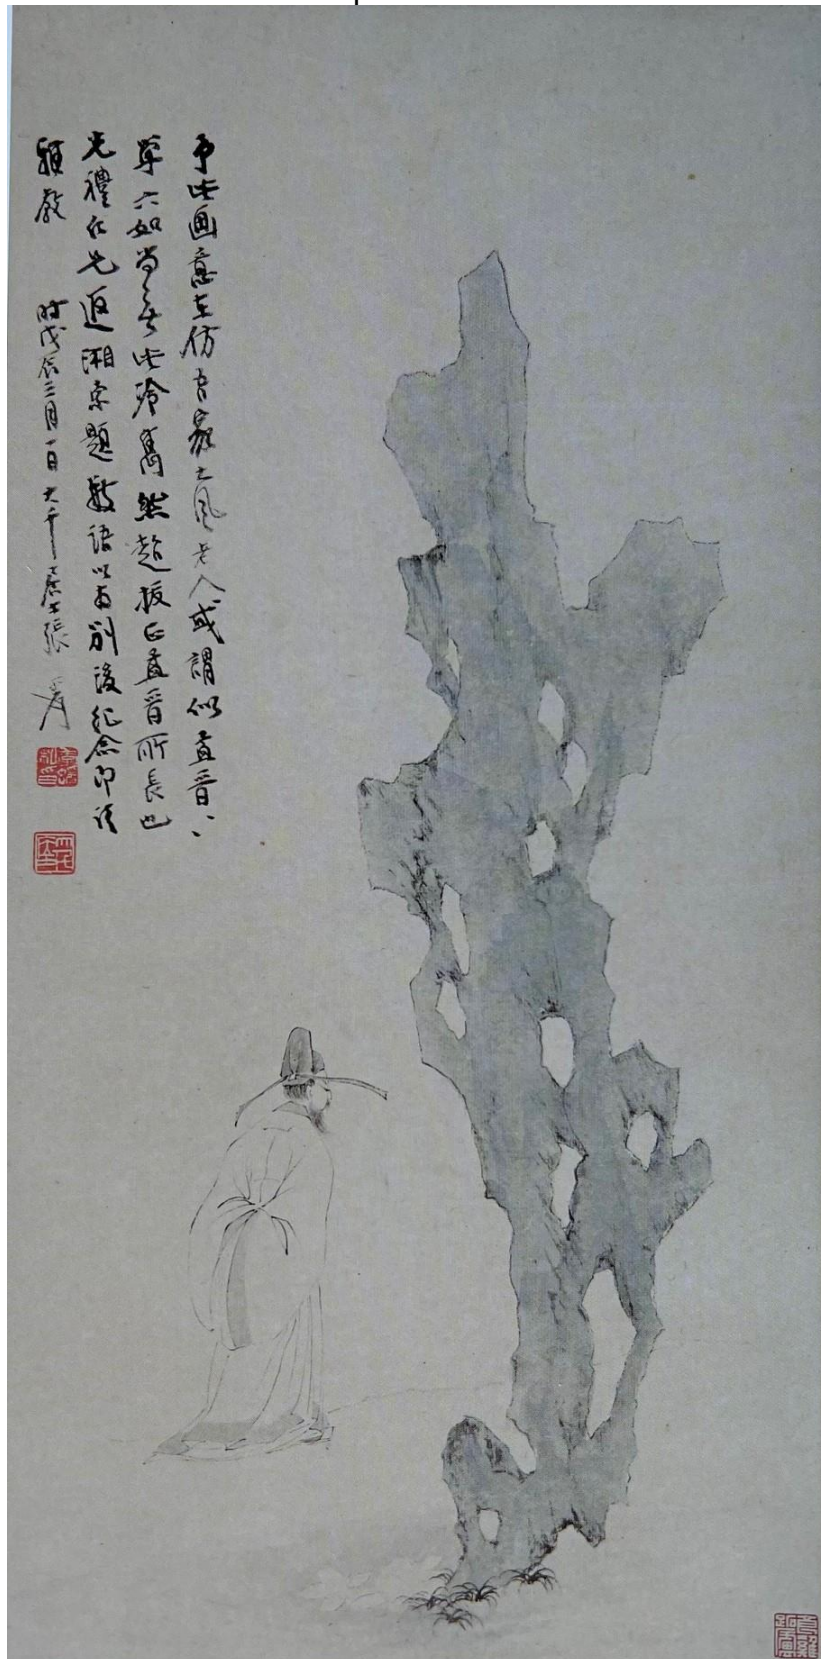 予此画意在仿吾家大風老人或謂似直晋八
草六如尚無此冷雋然超拔正直晋所長也
光禮仁兄返湘索題數語以為別後紀念即請
雅教　時戊辰三月一日大千居士張爰